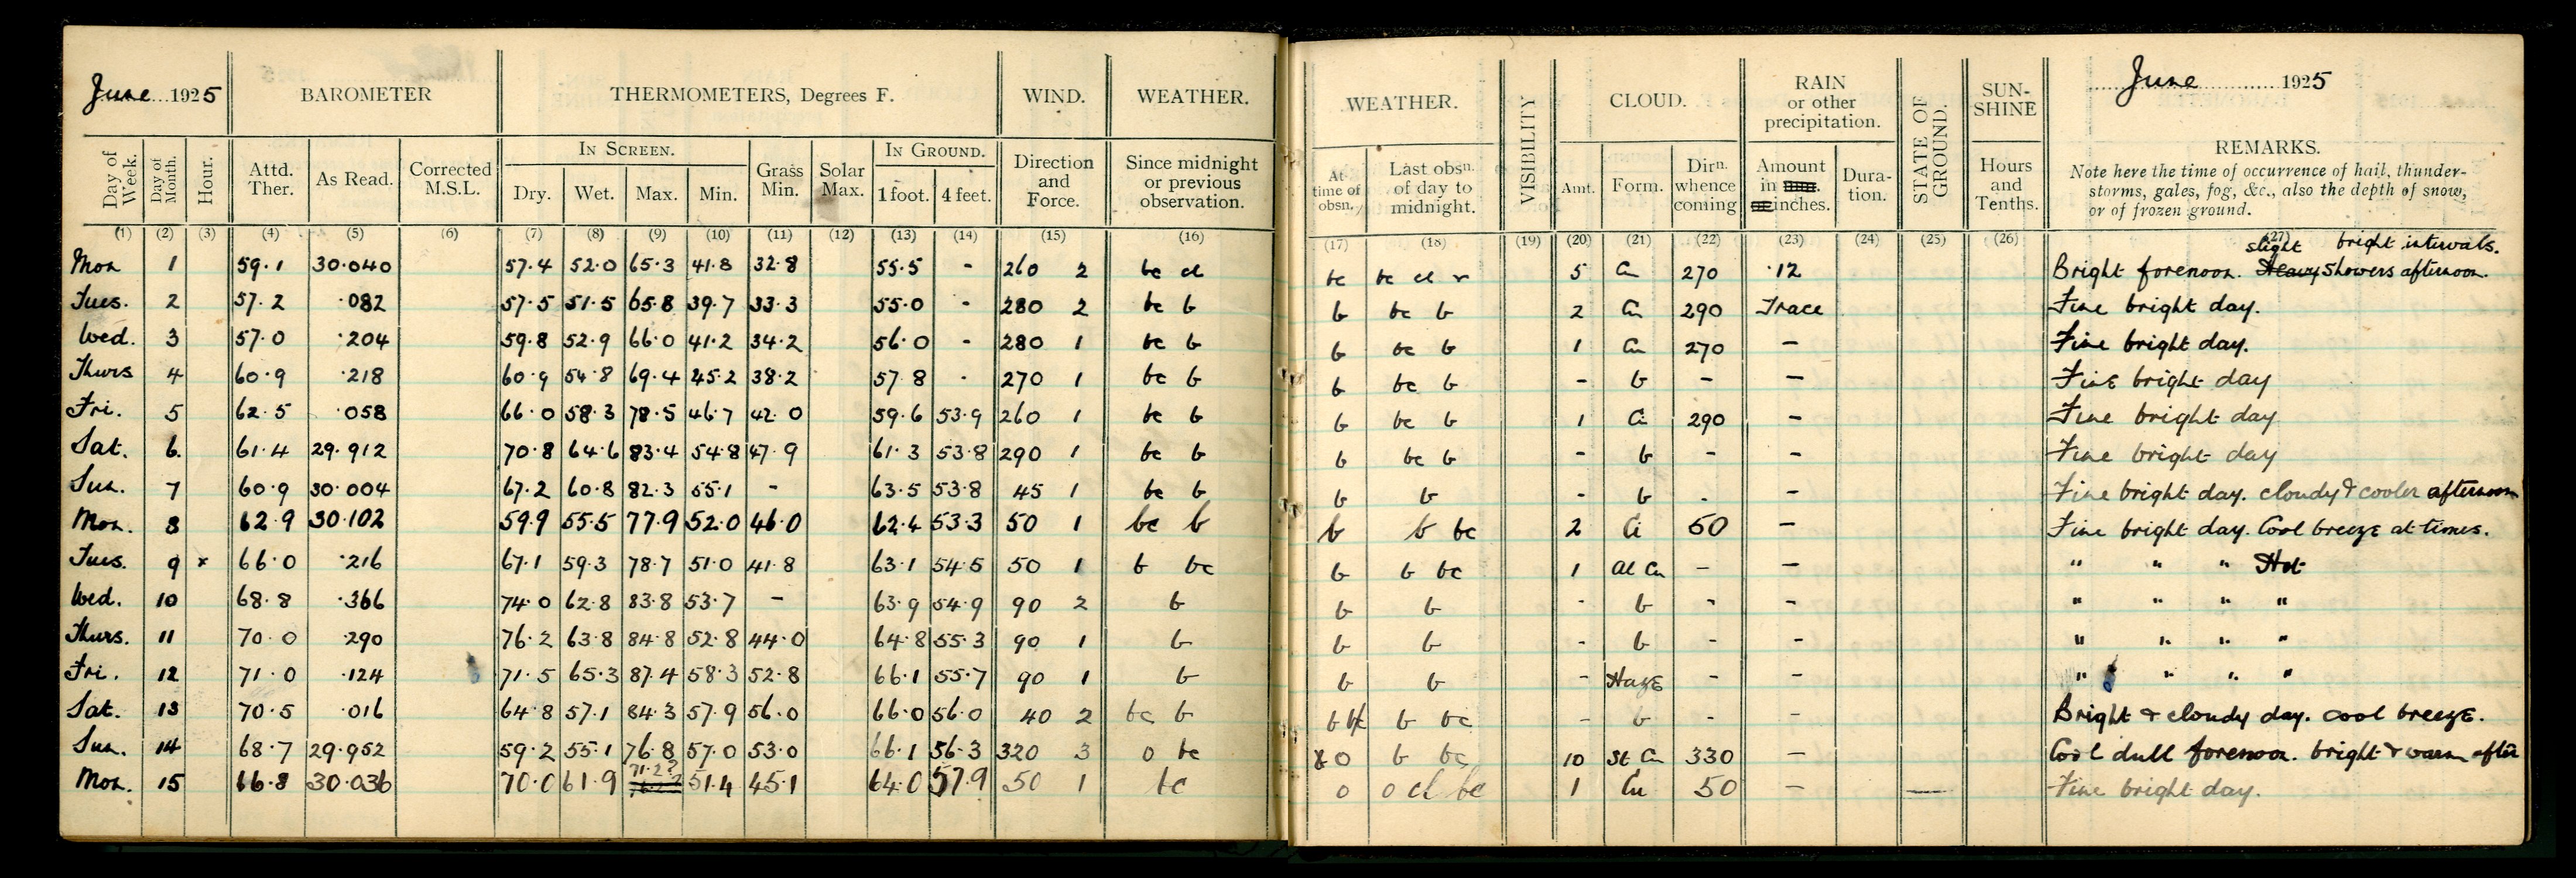 June 1925 BAROMETER THERMOMETERS, Degrees F. WIND. WEATHER.
Day of Week. Day of Month. Hour. Attd. Ther. As Read. Corrected M.S.L. IN SCREEN. Dry. Wet. Max. Min. Grass Min. Solar Max. IN GROUND. 1 foot. 4 feet. Direction and Force. Since midnight or previous observation.
(1) (2) (3) (4) (5) (6) (7) (8) (9) (10) (11) (12) (13) (14) (15) (16)
Mon 1 59.1 30.040 57.4 52.0 65.3 41.8 32.8 55.5 - 260 2 bc cl
Tues. 2 57.2 .082 57.5 51.5 65.8 39.7 33.3 55.0 - 280 2 bc b
Wed. 3 57.0 .204 59.8 52.9 66.0 41.2 34.2 56.0 - 280 1 bc b
Thurs 4 60.9 .218 60.9 54.8 69.4 45.2 38.2 57.8 - 270 1 bc b
Fri. 5 62.5 .058 66.0 58.3 78.5 46.7 42.0 59.6 53.9 260 1 bc b
Sat. 6. 61.4 29.912 70.8 64.6 83.4 54.8 47.9 61.3 53.8 290 1 bc b
Sun. 7 60.9 30.004 67.2 60.8 82.3 55.1 - 63.5 53.8 45 1 bc b
Mon. 8 62.9 30.102 59.9 55.5 77.9 52.0 46.0 62.4 53.3 50 1 bc b
Tues. 9 x 66.0 .216 67.1 59.3 78.7 51.0 41.8 63.1 54.5 50 1 b bc
Wed. 10 68.8 .366 74.0 62.8 83.8 53.7 - 63.9 54.9 90 2 b
Thurs. 11 70.0 .290 76.2 63.8 84.8 52.8 44.0 64.8 55.3 90 1 b
Fri. 12 71.0 .124 71.5 65.3 87.4 58.3 52.8 66.1 55.7 90 1 b
Sat. 13 70.5 .016 64.8 57.1 84.3 57.9 56.0 66.0 56.0 40 2 bc b
Sun. 14 68.7 29.952 59.2 55.1 76.8 57.0 53.0 66.1 56.3 320 3 o bc
Mon. 15 66.8 30.036 70.0 61.9 71.2? 51.4 45.1 64.0 57.9 50 1 bc
WEATHER. VISIBILITY CLOUD. RAIN or other precipitation. STATE OF GROUND. SUN-SHINE June 1925
At time of obsn. Last obsn. of day to midnight. Amt. Form. Dirn. whence coming Amount in inches. Duration. Hours and Tenths. REMARKS.
Note here the time of occurrence of hail, thunder-
storms, gales, fog, &c., also the depth of snow,
or of frozen ground.
(17) (18) (19) (20) (21) (22) (23) (24) (25) (26) (27)
slight bright intervals.
bc bc cl r 5 Cu 270 .12 Bright forenoon. Heavy showers afternoon.
b bc b 2 Cu 290 Trace Fine bright day.
b bc b 1 Cu 270 - Fine bright day.
b bc b - b - - Fine bright day
b bc b 1 Ci 290 - Fine bright day
b bc b - b - - Fine bright day
b b - b - - Fine bright day. cloudy & cooler afternoon
b b bc 2 Ci 50 - Fine bright day. Cool breeze at times.
b b bc 1 Al Cu - - " " " Hot
b b - b - - " " " "
b b - b - - " " " "
b b - Haze - - " " " "
b bc b bc - b - - Bright & cloudy day. cool breeze.
o b bc 10 St Cu 330 - Cool dull forenoon. bright & warm after
o o cl bc 1 Cu 50 - — Fine bright day.